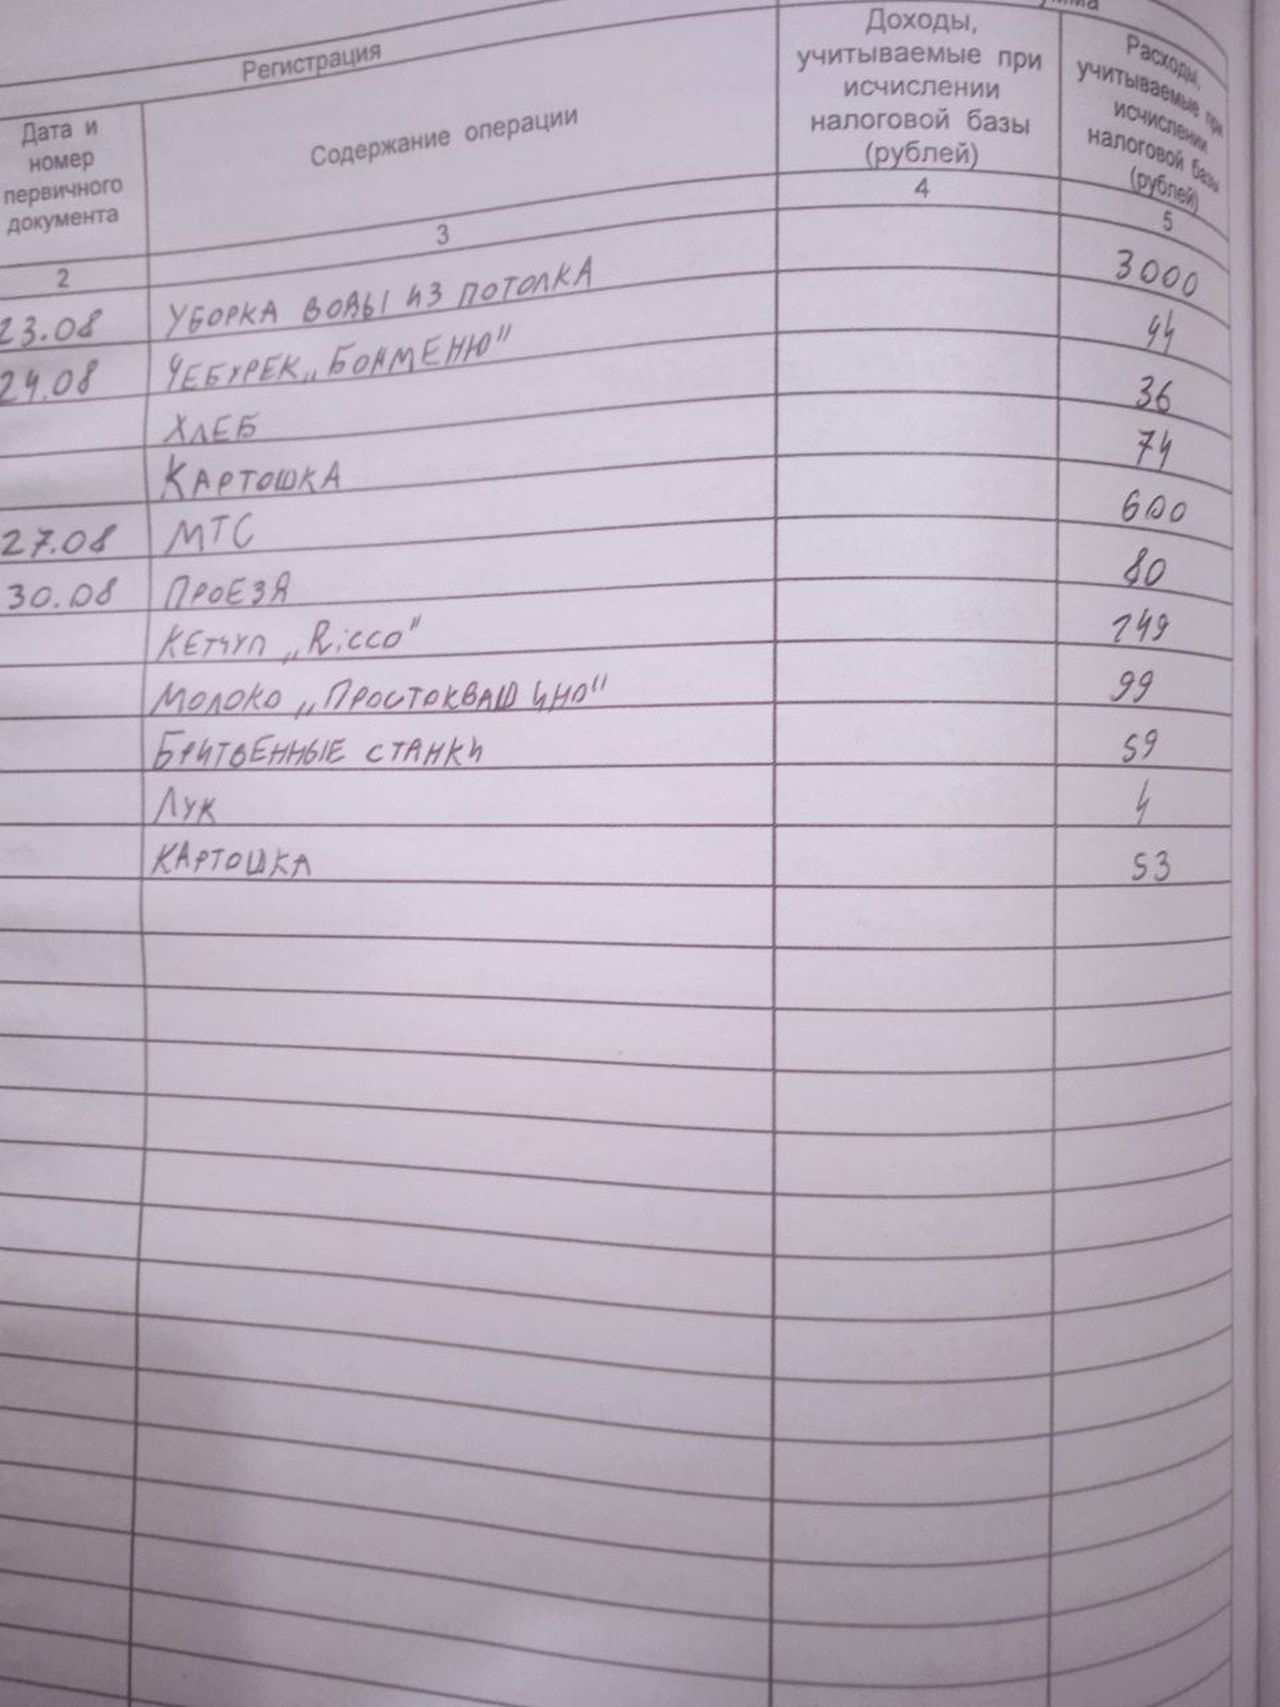 Регистрация
Дата и номер первичного документа
Содержание операции
Доходы, учитываемые при исчислении налоговой базы (рублей)
Расходы, учитываемые при исчислении налоговой базы (рублей)
2 3 4 5
23.08 УБОРКА ВОДЫ ИЗ ПОТОЛКА 3000
24.08 ЧЕБУРЕК „БОНМЕНЮ" 44
ХЛЕБ 36
КАРТОШКА 74
27.08 МТС 600
30.08 ПРОЕЗД 80
КЕТЧУП „Ricco" 149
МОЛОКО „ПРОСТОКВАШИНО" 99
БРИТВЕННЫЕ СТАНКИ 59
ЛУК 4
КАРТОШКА 53